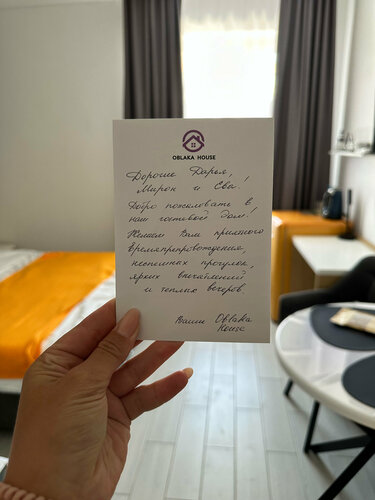 OBLAKA HOUSE
Дорогие Дарья,
Мирон и Ева!
Добро пожаловать в
наш гостевой дом!
Желаем Вам приятного
времяпрепровождения,
неспешных прогулок,
ярких впечатлений
и теплых вечеров.
Ваши Oblaka
House